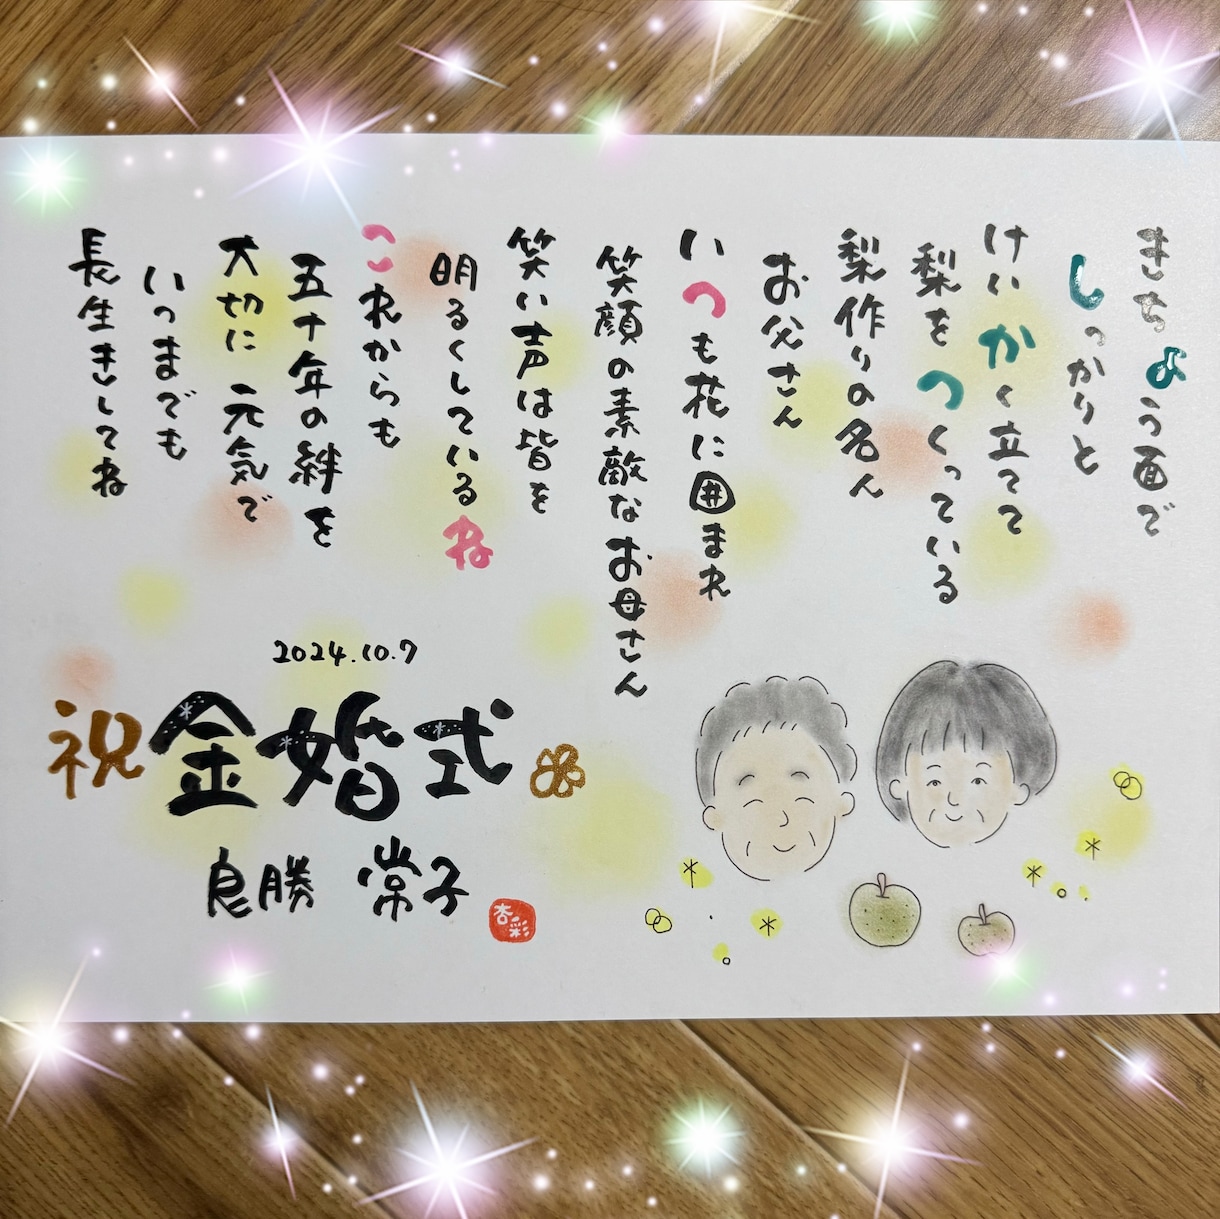 きちょう面で
しっかりと
けいかく立てて
梨をつくっている
梨作りの名人
お父さん
いつも花に囲まれ
笑顔の素敵なお母さん
笑い声は皆を
明るくしているね
これからも
五十年の絆を
大切に元気で
いつまでも
長生きしてね
2024.10.7
祝金婚式
良勝 常子
杏彩